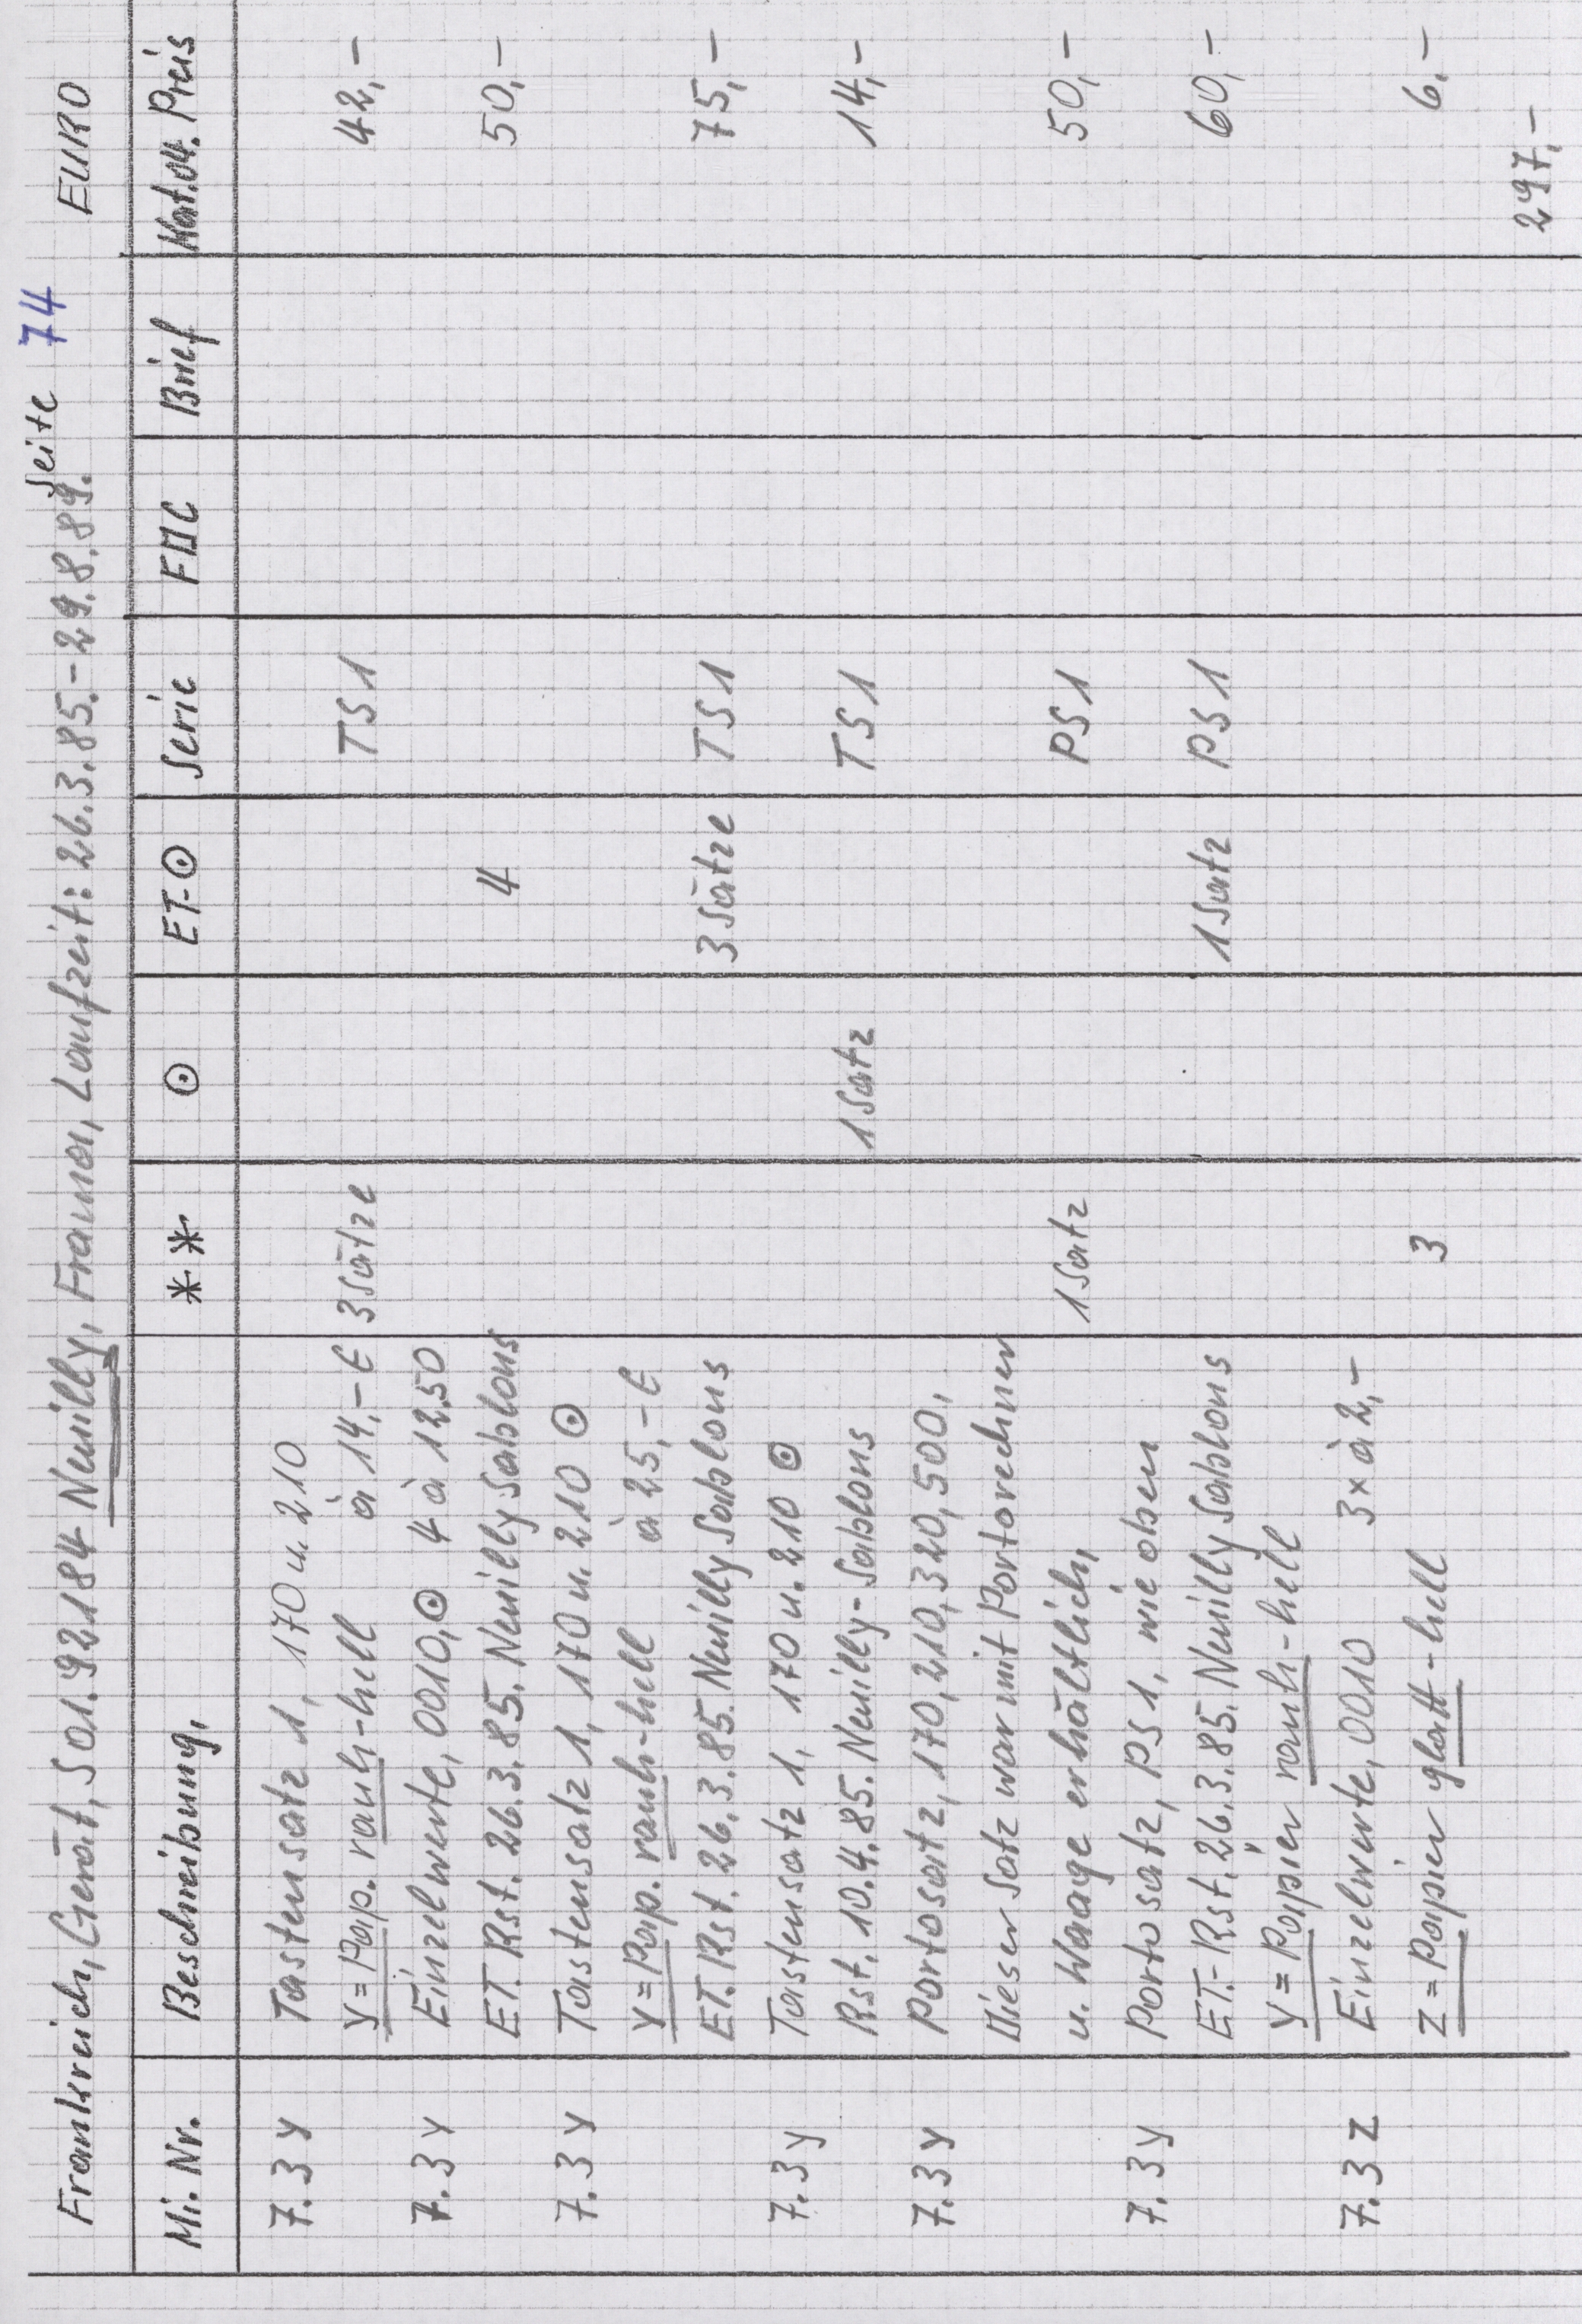 Seite 74
Frankreich, Gerät, 501.92184 Neuilly, Frama, Laufzeit: 26.3.85.-29.8.89. EURO
Mi. Nr. Beschreibung, ** ⊙ ET-⊙ Serie FDC Brief Kat.04. Preis
7.3 y Tastensatz 1, 170 u. 210
y = Pap. rauh-hell à 14,- € 3 Sätze TS1 42,-
7.3 y Einzelwerte, 0010, ⊙ 4 à 12,50
ET. Rst. 26.3.85. Neuilly Sablons 4 50,-
7.3 y Tastensatz 1, 170 u. 210 ⊙
y = Pap. rauh-hell à 25,- €
ET. Rst. 26.3.85. Neuilly Sablons 3 Sätze TS1 75,-
7.3 y Tastensatz 1, 170 u. 210 ⊙
Rst. 10.4.85. Neuilly-Sablons 1 Satz TS1 14,-
7.3 y Portosatz, 170, 210, 320, 500,
Dieser Satz war mit Portorechner
u. Waage erhältlich, 1 Satz PS1 50,-
7.3 y Portosatz, PS1, wie oben
ET.-Rst. 26.3.85. Neuilly Sablons 1 Satz PS1 60,-
y = Papier rauh-hell
7.3 z Einzelwerte, 0010 3 x à 2,-
z = Papier glatt-hell 3 6,-
297,-